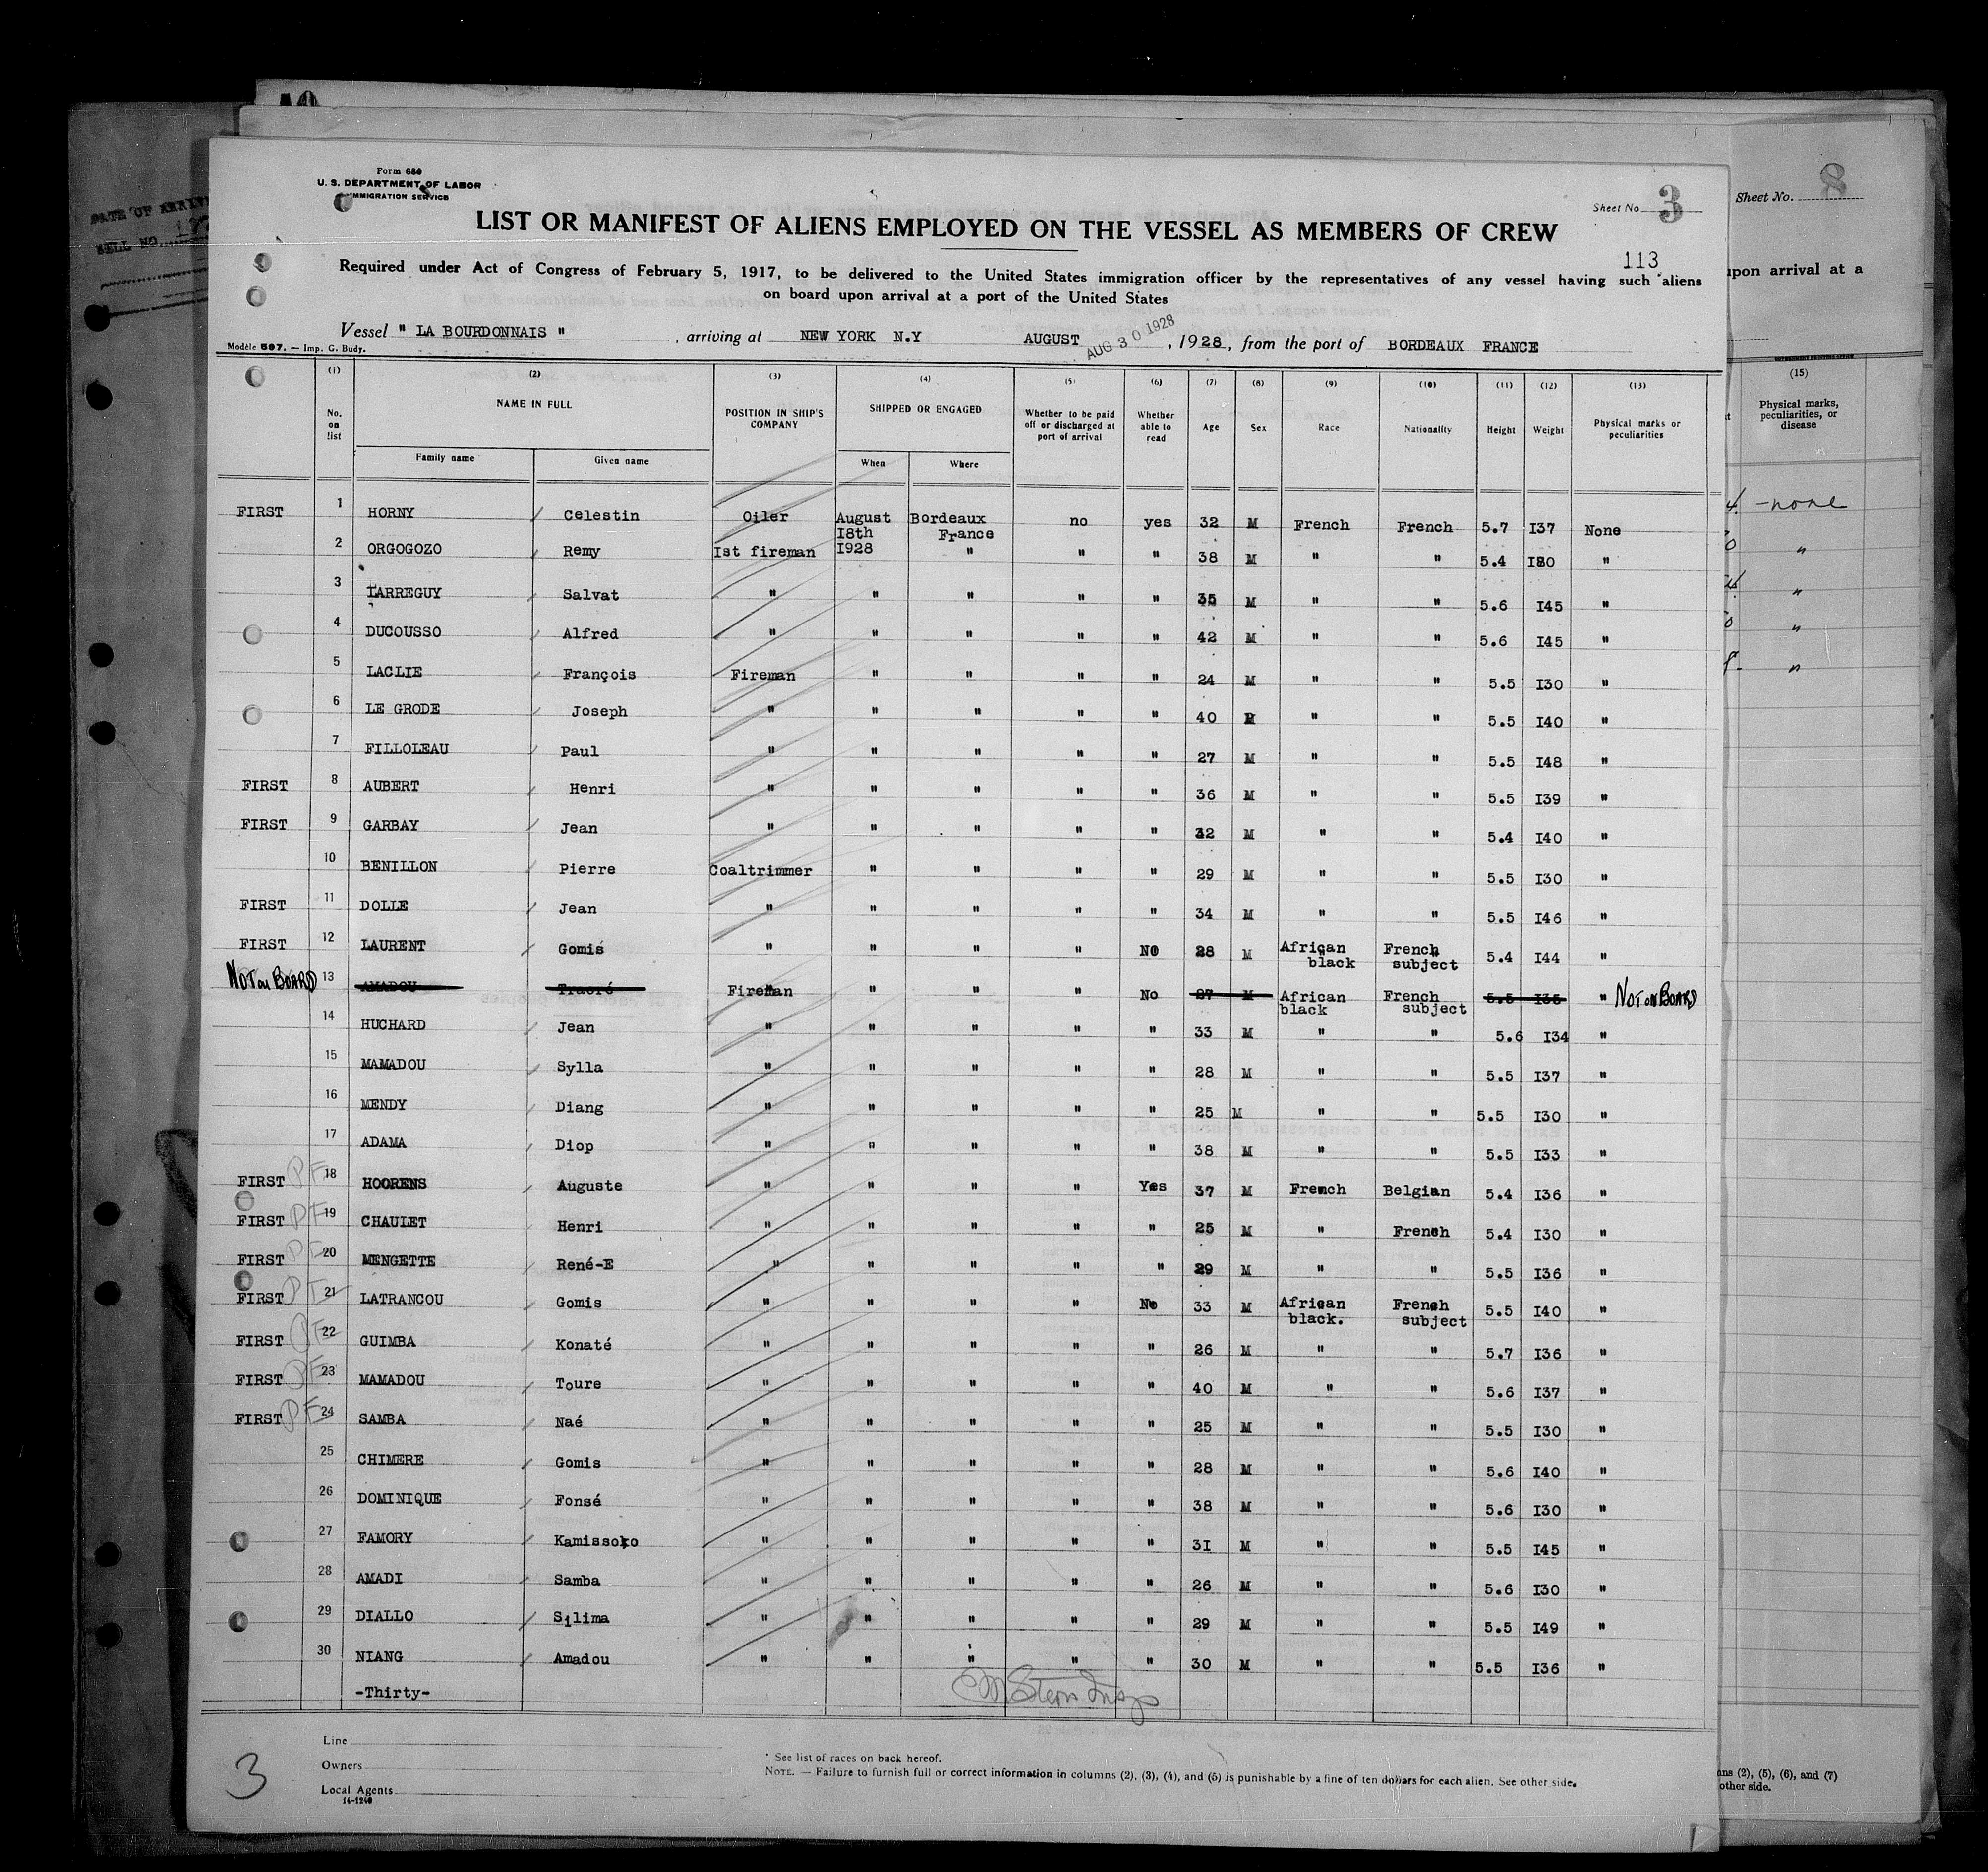 Form 680
U. S. DEPARTMENT OF LABOR
IMMIGRATION SERVICE
Sheet No. 3
Sheet No. 8
LIST OR MANIFEST OF ALIENS EMPLOYED ON THE VESSEL AS MEMBERS OF CREW
113
Required under Act of Congress of February 5, 1917, to be delivered to the United States immigration officer by the representatives of any vessel having such aliens
on board upon arrival at a port of the United States
upon arrival at a
Vessel " LA BOURDONNAIS " , arriving at NEW YORK N.Y AUGUST AUG 30 1928 , 1928, from the port of BORDEAUX FRANCE
Modèle 597. — Imp. G. Budy.
(1) (2) (3) (4) (5) (6) (7) (8) (9) (10) (11) (12) (13) (15)
No. on list NAME IN FULL POSITION IN SHIP'S COMPANY SHIPPED OR ENGAGED Whether to be paid off or discharged at port of arrival Whether able to read Age Sex Race Nationality Height Weight Physical marks or peculiarities
Physical marks, peculiarities, or disease
Family name Given name When Where
FIRST 1 HORNY Celestin Oiler August 18th 1928 Bordeaux France no yes 32 M French French 5.7 I37 None
2 ORGOGOZO Remy Ist fireman " " " 38 M " " 5.4 I80 "
3 LARREGUY Salvat " " " " " 35 M " " 5.6 I45 "
4 DUCOUSSO Alfred " " " " " 42 M " " 5.6 I45 "
5 LACLIE François Fireman " " " " 24 M " " 5.5 I30 "
6 LE GRODE Joseph " " " " " 40 M " " 5.5 I40 "
7 FILLOLEAU Paul " " " " " 27 M " " 5.5 I48 "
FIRST 8 AUBERT Henri " " " " " 36 M " " 5.5 I39 "
FIRST 9 GARBAY Jean " " " " " 32 M " " 5.4 I40 "
10 BENILLON Pierre Coaltrimmer " " " " 29 M " " 5.5 I30 "
FIRST 11 DOLLE Jean " " " " " 34 M " " 5.5 I46 "
FIRST 12 LAURENT Gomis " " " " NO 28 M African black French subject 5.4 I44 "
NOT on BOARD 13 AMADOU Traoré Fireman " " " No 27 M African black French subject 5.5 I35 " NOT on BOARD
14 HUCHARD Jean " " " " " 33 M " " 5.6 I34 "
15 MAMADOU Sylla " " " " " 28 M " " 5.5 I37 "
16 MENDY Diang " " " " " 25 M " " 5.5 I30 "
17 ADAMA Diop " " " " " 38 M " " 5.5 I33 "
FIRST PF 18 HOORENS Auguste " " " " Yes 37 M French Belgian 5.4 I36 "
FIRST PF 19 CHAULET Henri " " " " " 25 M " French 5.4 I30 "
FIRST PF 20 MENGETTE René-E " " " " " 29 M " " 5.5 I36 "
FIRST PF 21 LATRANCOU Gomis " " " " No 33 M African black. French subject 5.5 I40 "
FIRST PF 22 GUIMBA Konaté " " " " " 26 M " " 5.7 I36 "
FIRST PF 23 MAMADOU Toure " " " " " 40 M " " 5.6 I37 "
FIRST PF 24 SAMBA Naé " " " " " 25 M " " 5.5 I30 "
25 CHIMERE Gomis " " " " " 28 M " " 5.6 I40 "
26 DOMINIQUE Fonsé " " " " " 38 M " " 5.6 I30 "
27 FAMORY Kamissoko " " " " " 3I M " " 5.5 I45 "
28 AMADI Samba " " " " " 26 M " " 5.6 I30 "
29 DIALLO Silima " " " " " 29 M " " 5.5 I49 "
30 NIANG Amadou " " " " " 30 M " " 5.5 I36 "
-Thirty-
- none
"
"
"
"
Line
Owners
Local Agents
14-1240
3
* See list of races on back hereof.
NOTE. — Failure to furnish full or correct information in columns (2), (3), (4), and (5) is punishable by a fine of ten dollars for each alien. See other side.
(2), (5), (6), and (7)
other side.